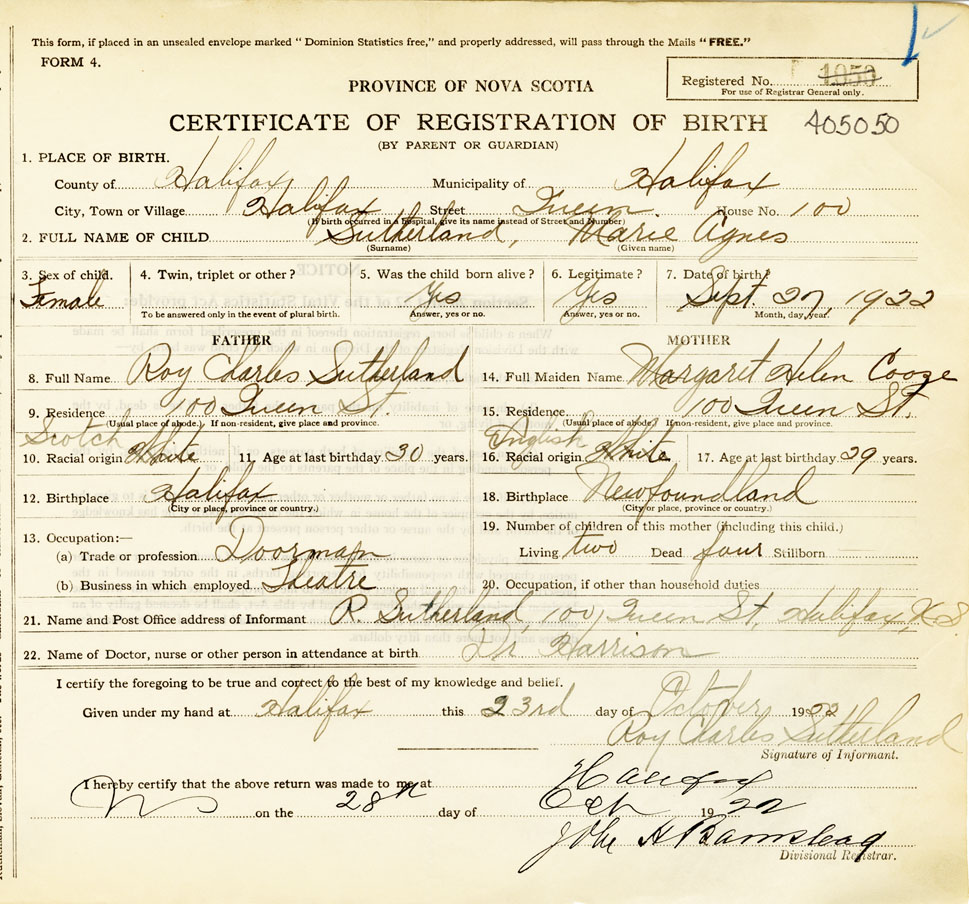 This form, if placed in an unsealed envelope marked "Dominion Statistics free," and properly addressed, will pass through the Mails "FREE."
FORM 4.
PROVINCE OF NOVA SCOTIA
Registered No. 1050
For use of Registrar General only.
CERTIFICATE OF REGISTRATION OF BIRTH 405050
(BY PARENT OR GUARDIAN)
1. PLACE OF BIRTH.
County of Halifax Municipality of Halifax
City, Town or Village Halifax Street Queen House No. 100
(If birth occurred in a hospital, give its name instead of Street and Number)
2. FULL NAME OF CHILD Sutherland, Marie Agnes
(Surname) (Given name)
3. Sex of child. 4. Twin, triplet or other? 5. Was the child born alive? 6. Legitimate? 7. Date of birth?
Female Yes Yes Sept. 27, 1922
To be answered only in the event of plural birth. Answer, yes or no. Answer, yes or no. Month, day, year.
FATHER MOTHER
8. Full Name Roy Charles Sutherland 14. Full Maiden Name Margaret Helen Cooze
9. Residence 100 Queen St. 15. Residence 100 Queen St.
(Usual place of abode.) If non-resident, give place and province. (Usual place of abode.) If non-resident, give place and province.
Scotch English
10. Racial origin White 11. Age at last birthday 30 years. 16. Racial origin White 17. Age at last birthday 29 years.
12. Birthplace Halifax 18. Birthplace Newfoundland
(City or place, province or country.) (City or place, province or country.)
19. Number of children of this mother (including this child.)
13. Occupation:—
(a) Trade or profession Doorman Living two Dead four Stillborn
(b) Business in which employed Theatre 20. Occupation, if other than household duties
21. Name and Post Office address of Informant R. Sutherland, 100, Queen St, Halifax, N.S.
22. Name of Doctor, nurse or other person in attendance at birth Dr Harrison
I certify the foregoing to be true and correct to the best of my knowledge and belief.
Given under my hand at Halifax this 23rd day of October 1922
Roy Charles Sutherland
Signature of Informant.
I hereby certify that the above return was made to me at Halifax
on the 28th day of Oct 1922
John H Barnstead
Divisional Registrar.